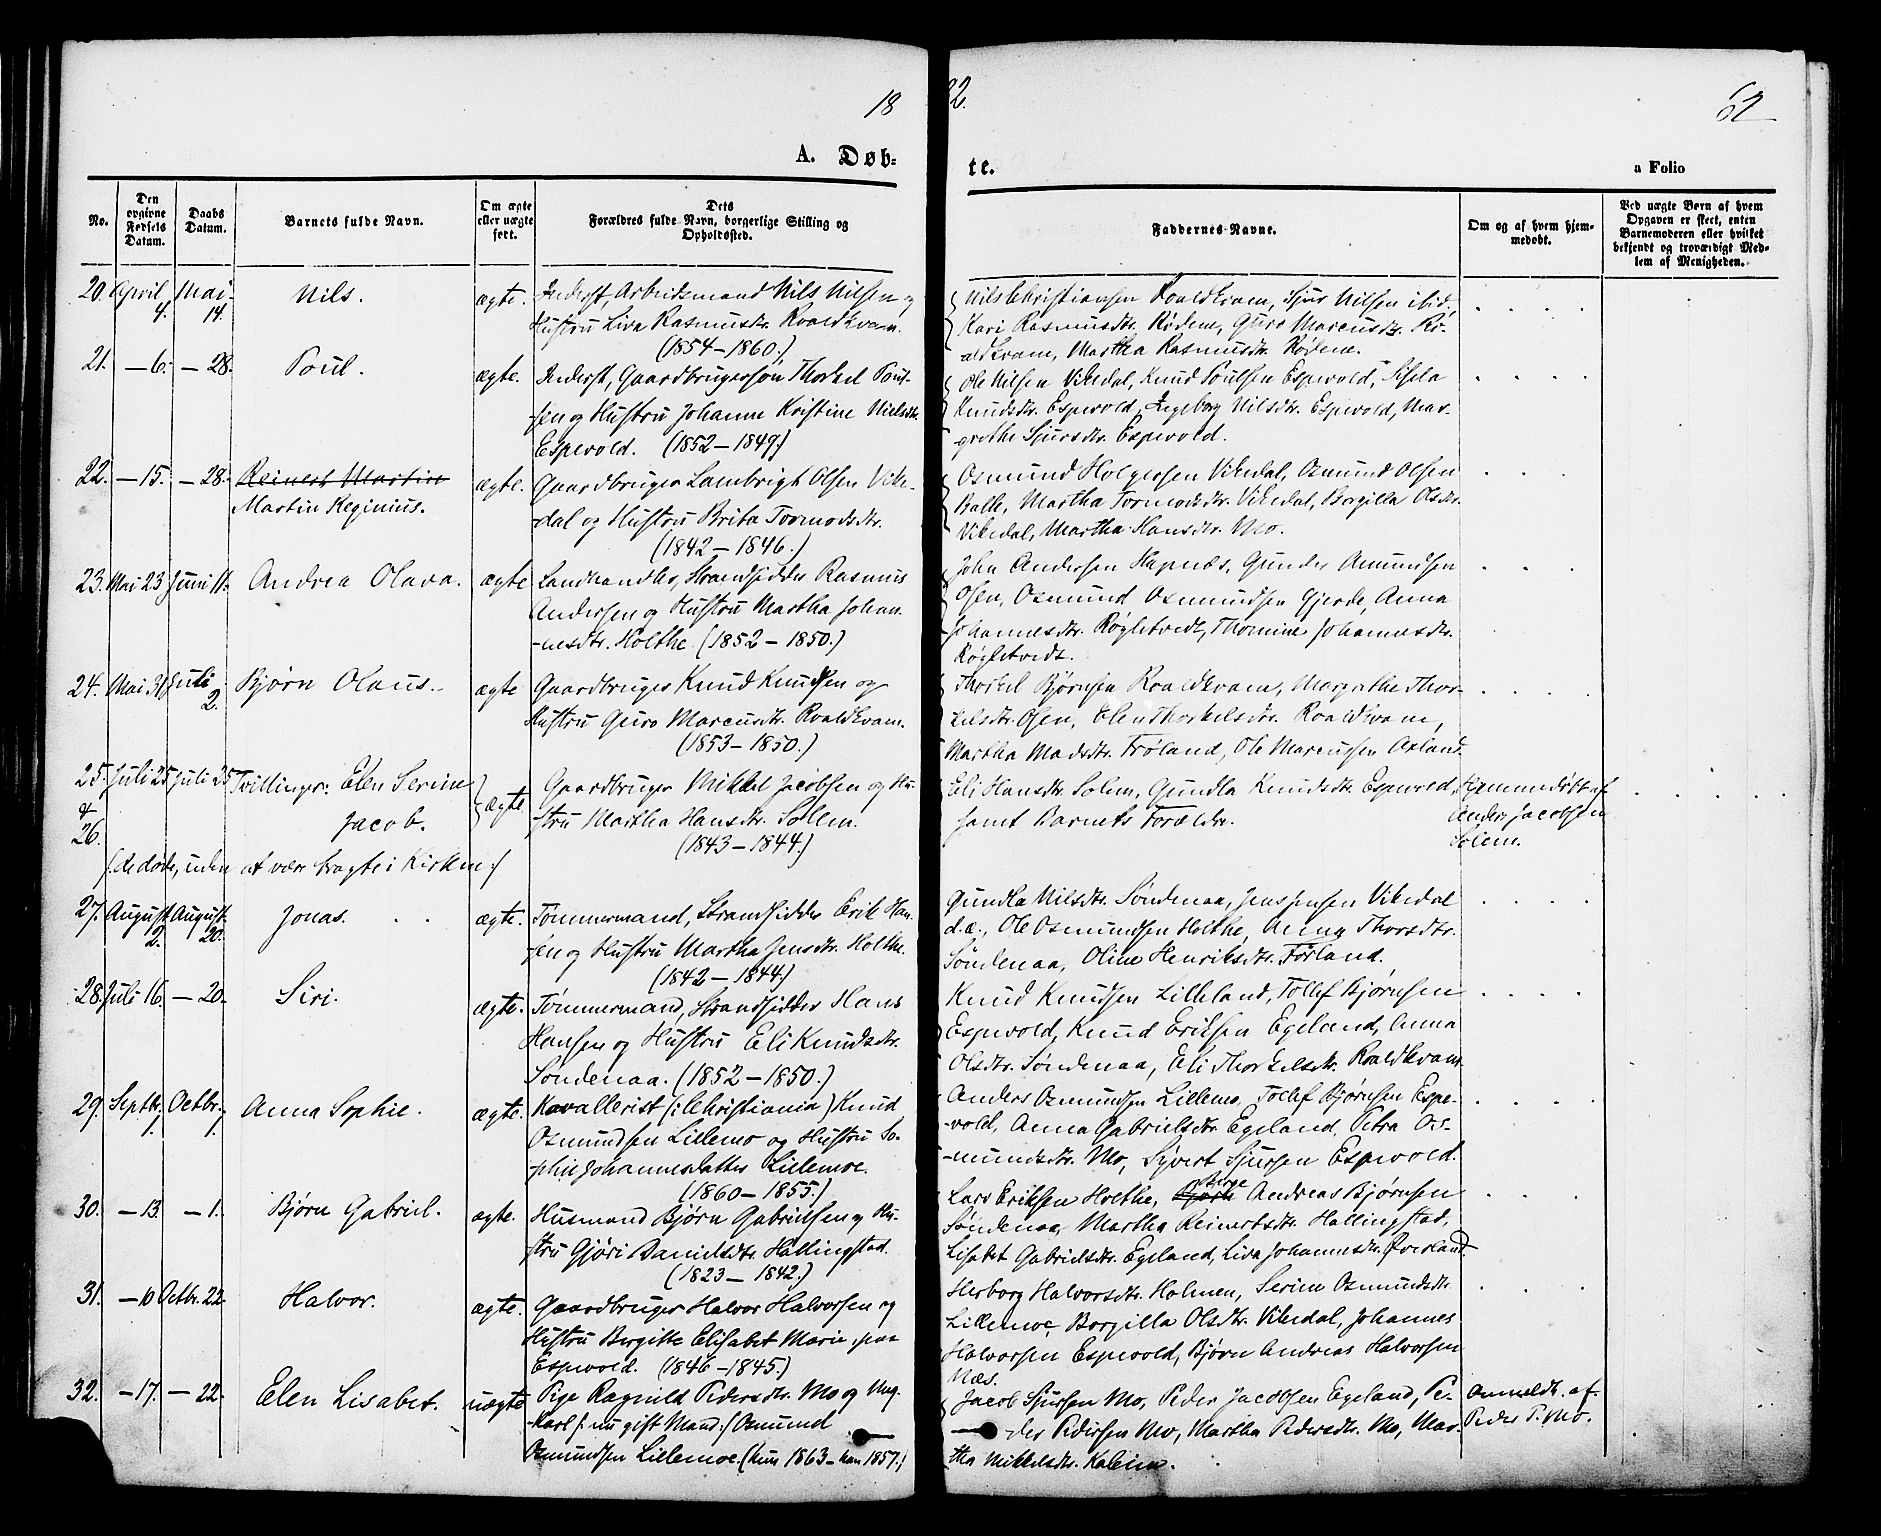 18
82.
62
A. Døb-
te.
a Folio
No.
Den opgivne Fødsels Datum.
Daabs Datum.
Barnets fulde Navn.
Om ægte eller uægte født.
Dets Forældres fulde Navn, borgerlige Stilling og Opholdssted.
Faddernes Navne.
Om og af hvem hjem-
medøbt.
Ved uægte Børn af hvem
Opgaven er skeet, enten
Barnemoderen eller hvilket
bekjendt og troværdigt Med-
lem af Menigheden.
20. April 4. Mai 14. Nils. ægte. Inderst, Arbeidsmand Nils Nilsen og
Hustru Liva Rasmusdtr. Roaldkvam.
(1854-1860.)
Nils Christiansen Roaldkvam, Sjur Nilsen ibid,
Kari Rasmusdtr. Rødene, Guro Marcusdtr. Ro-
aldkvam, Martha Rasmusdtr. Rødene.
21. - 6. - 28. Poul. ægte. Inderst, Gaardbrugersøn Thorkel Poul-
sen og Hustru Johanne Kristine Nielsdtr.
Espevold. (1852-1849)
Ole Nilsen Vikedal, Knud Poulsen Espevold, Sisela
Knudsdtr. Espevold, Ingeborg Nilsdtr. Espevold, Mar-
grethe Sjursdtr. Espevold.
22. - 15. - 28. Reinert Martin
Martin Reginius. ægte. Gaardbruger Lambrigt Olsen Vike-
dal og Hustru Brita Tormodsdtr.
(1842-1846.)
Osmund Holgersen Vikedal, Osmund Olsen
Balle, Martha Tormodsdtr. Vikedal, Borgilla Olsdtr.
Vikedal, Martha Hansdtr. Mo.
23. Mai 23 Juni 11. Andrea Olava. ægte Landhandler, Strandsidder Rasmus
Andersen og Hustru Martha Johan-
nesdtr. Holthe (1852-1850.)
John Andersen Hapnæs, Gunder Amundsen
Øsen, Osmund Osmundsen Gjerde, Anna
Johannesdtr. Røgletvedt, Thomine Johannesdtr.
Røgletvedt.
24. Mai 31 Juli 2. Bjørn Olaus. ægte Gaardbruger Knud Knudsen og
Hustru Guro Marcusdtr. Roaldkvam.
(1853-1850.)
Thorkel Bjørnsen Roaldkvam, Margrethe Thor-
kelsdtr. Øsen, Elen Thorkelsdtr. Roaldkvam,
Martha Madsdtr. Frøland, Ole Marcussen Axland.
25 & 26. Juli 25 Juli 25 Tvillinger: Elen Serine
Jacob. ægte Gaardbruger Mikkel Jacobsen og Hu-
stru Martha Hansdtr. Solem.
(1843-1844.)
(: de døde, uden at være bragte i Kirken :)
Eli Hansdtr. Solem, Gundla Knudsdtr. Espevold,
samt Barnets Forældre.
Hjemmedøbt af
Anders Jacobsen
Solem.
27. August 2. August 20. Jonas. ægte. Tømmermand, Strandsidder Erik Han-
sen og Hustru Martha Jensdtr. Holthe.
(1842-1844.)
Gundla Nilsdtr. Søndenaa, Jens Jensen Vikedal
d.æ., Ole Osmundsen Holthe, Anna Thorsdtr.
Søndenaa, Oline Henriksdtr. Førland.
28. Juli 16. - 20. Siri. ægte. Tømmermand, Strandsidder Hans
Hansen og Hustru Eli Knudsdtr.
Søndenaa. (1852-1850.)
Knud Knudsen Lilleland, Tollef Bjørnsen
Espevold, Knud Eriksen Egeland, Anna
Olsdtr. Søndenaa, Eli Thorkelsdtr. Roaldkvam.
29. Septbr. 7. Octbr. 1. Anna Sophie. ægte. Kavallerist (: Christiania) Knud
Osmundsen Lillemo og Hustru So-
phie Johannesdatter Lillemoe.
(1860-1855.)
Anders Osmundsen Lillemo, Tollef Bjørnsen Espe-
vold, Anna Gabrielsdtr. Egeland, Petra Os-
mundsdtr. Mo, Syvert Sjursen Espevold.
30. - 13. - 1. Bjørn Gabriel. ægte. Husmand Bjørn Gabrielsen og Hu-
stru Gjøri Danielsdtr. Hallingstad.
(1823-1842.)
Lars Eriksen Holthe, Andreas Bjørnsen
Søndenaa, Martha Reinertsdtr. Hallingstad,
Lisabet Gabrielsdtr. Egeland, Liva Johannesdtr. Øverland.
31. - 10 Octbr. 22. Halvor. ægte. Gaardbruger Halvor Halvorsen og
Hustru Bergitte Elisabet Marie, paa
Espevold. (1846-1845)
Herborg Halvorsdtr. Holmen, Serine Osmundsdtr.
Lillemoe, Borgilla Olsdtr. Vikedal, Johannes
Halvorsen Espevold, Bjørn Andreas Halvorsen
Næs.
32. - 17. - 22. Elen Lisabet. uægte Pige Ragnild Pedersdtr. Mo og Ung-
karl (: nu gift Mand :) Osmund
Osmundsen Lillemoe. (hun 1863 - han 1857.)
Jacob Sjursen Mo, Peder Jacobsen Egeland, Pe-
der Pedersen Mo, Martha Pedersdtr. Mo, Mar-
tha Mikkelsdtr. Kaleim.
Anmeldt. af
Peder P. Mo.